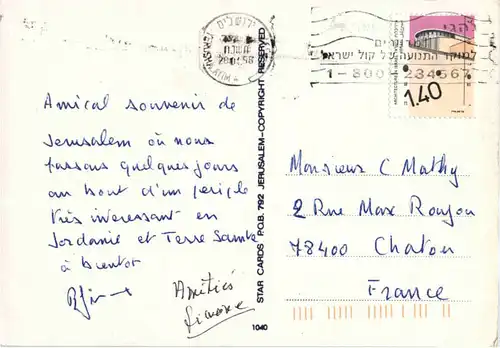 Amical souvenir de
Jerusalem où nous
passons quelques jours
au bout d'un periple
très interessant en
Jordanie et Terre Sainte
à bientot
Amitiés
Simone
STAR CARDS P.O.B. 792 JERUSALEM-COPYRIGHT RESERVED
1040
ירושלים
למוקד התנועה של קול ישראל
1-800 234567
1.40
Monsieur C Mathy
2 Rue Max Roujou
78400 Chatou
France